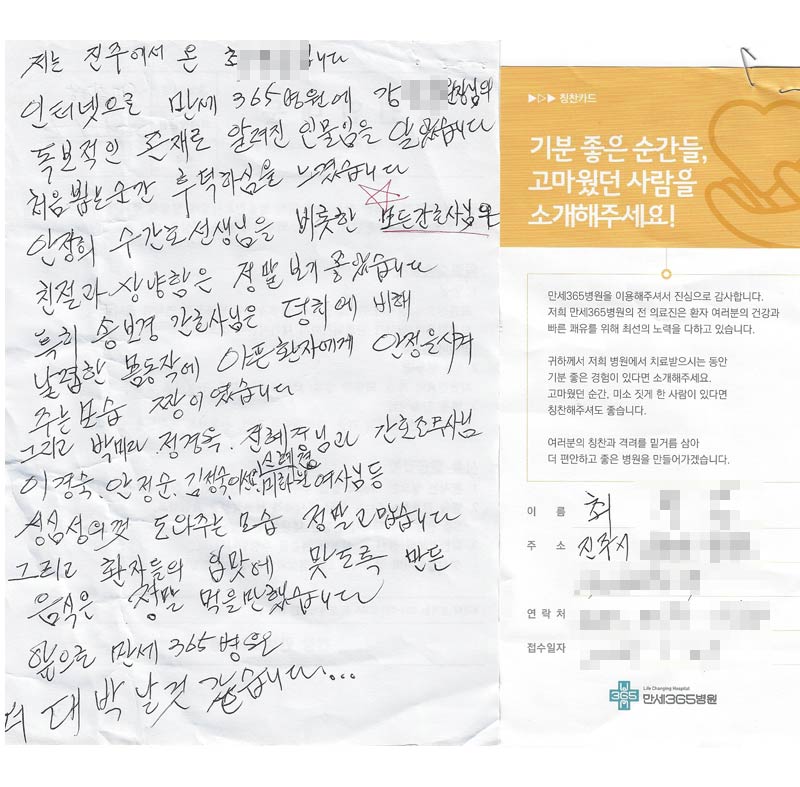 저는 진주에서 온 최 니다
인터넷으로 만세 365병원에 강 원장님의
독보적인 존재로 알려진 인물임을 알았습니다
처음 뵙는순간 후덕하심을 느꼈습니다
안정희 수간호선생님을 비롯한 모든간호사님의
친절과 상냥함은 정말 보기 좋았습니다
특히 송보경 간호사님은 덩치에 비해
날렵한 몸동작에 아픈환자에게 안정을시켜
주는모습 짱이였습니다
그리고 박미라. 정경옥. 전혜정님과 간호조무사님
이경숙. 안정순. 김정숙 여사님등
성심성의껏 도와주는 모습 정말 고맙습니다
그리고 환자들의 입맛에 맞도록 만든
음식은 정말 먹을만했습니다
앞으로 만세 365병원
더 대박 날것 같습니다...
▶▷▶ 칭찬카드
기분 좋은 순간들,
고마웠던 사람을
소개해주세요!
만세365병원을 이용해주셔서 진심으로 감사합니다.
저희 만세365병원의 전 의료진은 환자 여러분의 건강과
빠른 쾌유를 위해 최선의 노력을 다하고 있습니다.
귀하께서 저희 병원에서 치료받으시는 동안
기분 좋은 경험이 있다면 소개해주세요.
고마웠던 순간, 미소 짓게 한 사람이 있다면
칭찬해주셔도 좋습니다.
여러분의 칭찬과 격려를 밑거름 삼아
더 편안하고 좋은 병원을 만들어가겠습니다.
이 름 최
주 소 진주시
연 락 처
접수일자
Life Changing Hospital
365 만세365병원